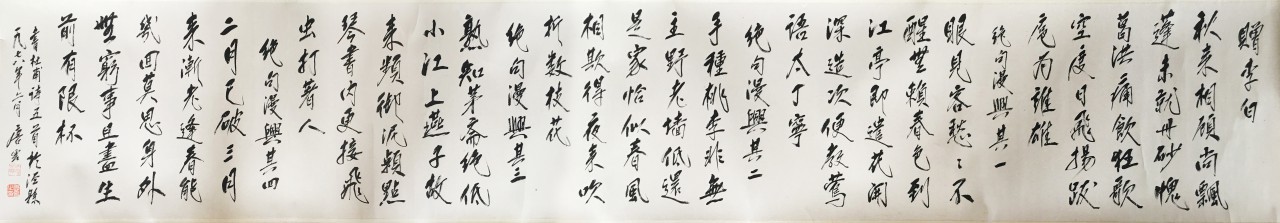 贈李白
秋来相顧尚飄
蓬未就丹砂愧
葛洪痛飲狂歌
空度日飛揚跋
扈为誰雄
绝句漫興其一
眼見客愁々不
醒無賴春色到
江亭即遣花開
深造次便教鶯
語太丁寧
绝句漫興其二
手種桃李非無
主野老墙低還
是家恰似春風
相欺得夜来吹
折数枝花
绝句漫興其三
熟知茅斋绝低
小江上燕子故
来頻銜泥頻點
琴書内更接飛
虫打著人
绝句漫興其四
二月已破三月
来漸老逢春能
幾回莫思身外
無窮事且盡生
前有限杯
杜甫詩五首於
一九九年